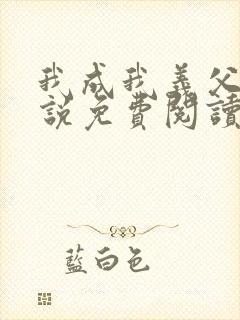 我成我義父
說免費閱讀
藍白色